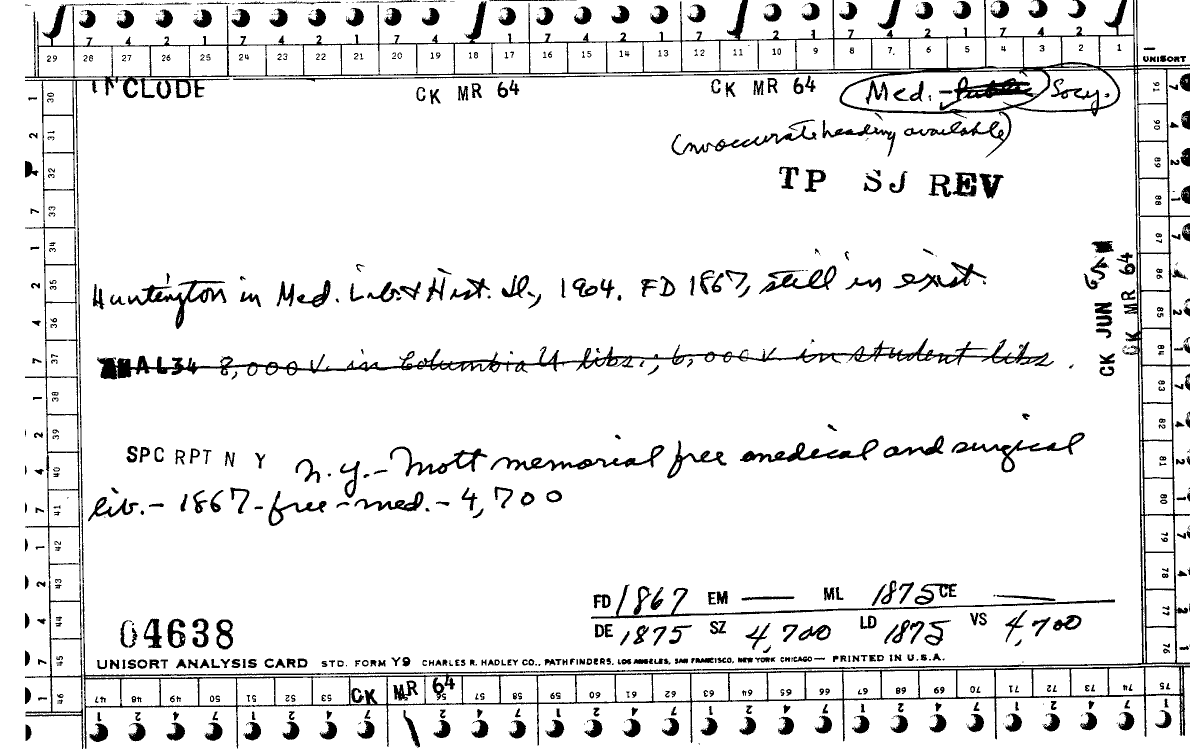 7 4 2 1 7 4 2 1 7 4 2 1 7 4 2 1 7 4 2 1 7 4 2 1 7 4 2 1
29 28 27 26 25 24 23 22 21 20 19 18 17 16 15 14 13 12 11 10 9 8 7 6 5 4 3 2 1
UNISORT
INCLUDE CK MR 64 CK MR 64 Med. - Public Socy.
(no accurate heading available)
TP SJ REV
Huntington in Med. Lib. & Hist. Jl., 1904. FD 1867, still in exist.
AL34 8,000 v. in Columbia U libs.; 6,000 v. in student libs.
CK JUN
CK MR 64
SPC RPT N Y N.Y. - Mott memorial free medical and surgical
lib. - 1867 - free - med. - 4,700
FD 1867 EM — ML 1875 CE —
DE 1875 SZ 4,700 LD 1875 VS 4,700
04638
UNISORT ANALYSIS CARD STD. FORM Y9 CHARLES R. HADLEY CO., PATHFINDERS, LOS ANGELES, SAN FRANCISCO, NEW YORK CHICAGO — PRINTED IN U.S.A.
30 31 32 33 34 35 36 37 38 39 40 41 42 43 44 45 46
91 90 89 88 87 86 85 84 83 82 81 80 79 78 77 76
47 48 49 50 51 52 53 CK MR 64 57 58 59 60 61 62 63 64 65 66 67 68 69 70 71 72 73 74 75